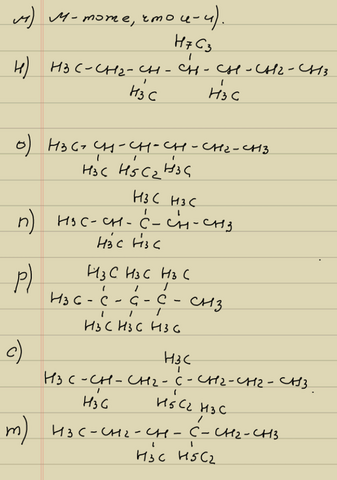 м) м-тоте, что и-и).
H7C3
н) H3C-CH2-CH-CH-CH-CH2-CH3
H3C H3C
о) H3C-CH-CH-CH-CH2-CH3
H3C H5C2 H3C
H3C H3C
п) H3C-CH-C-CH-CH3
H3C H3C
H3C H3C H3C
р) H3C-C-C-C-CH3
H3C H3C H3C
с)
H3C
H3C-CH-CH2-C-CH2-CH2-CH3.
H3C H5C2
H3C
т) H3C-CH2-CH-C-CH2-CH3
H3C H5C2